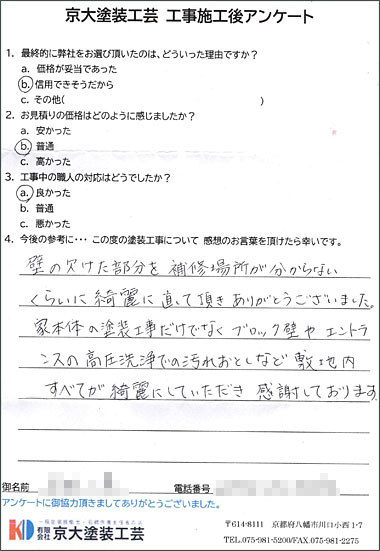 京大塗装工芸 工事施工後アンケート
1. 最終的に弊社をお選び頂いたのは、どういった理由ですか?
a. 価格が妥当であった
b. 信用できそうだから
c. その他( )
2. お見積りの価格はどのように感じましたか?
a. 安かった
b. 普通
c. 高かった
3. 工事中の職人の対応はどうでしたか?
a. 良かった
b. 普通
c. 悪かった
4. 今後の参考に・・・ この度の塗装工事について 感想のお言葉を頂けたら幸いです。
壁の欠けた部分を 補修場所が分からない
くらいに 綺麗に 直して頂き ありがとうございました。
家本体の塗装工事だけでなく ブロック壁や エントラ
ンスの 高圧洗浄での汚れおとしなど 敷地内
すべてが 綺麗にしていただき 感謝しております
御名前
電話番号
アンケートに御協力頂きましてありがとうございました。
KD 有限会社 京大塗装工芸
〒614-8111 京都府八幡市川口小西 1-7
TEL.075-981-5200/FAX.075-981-2275